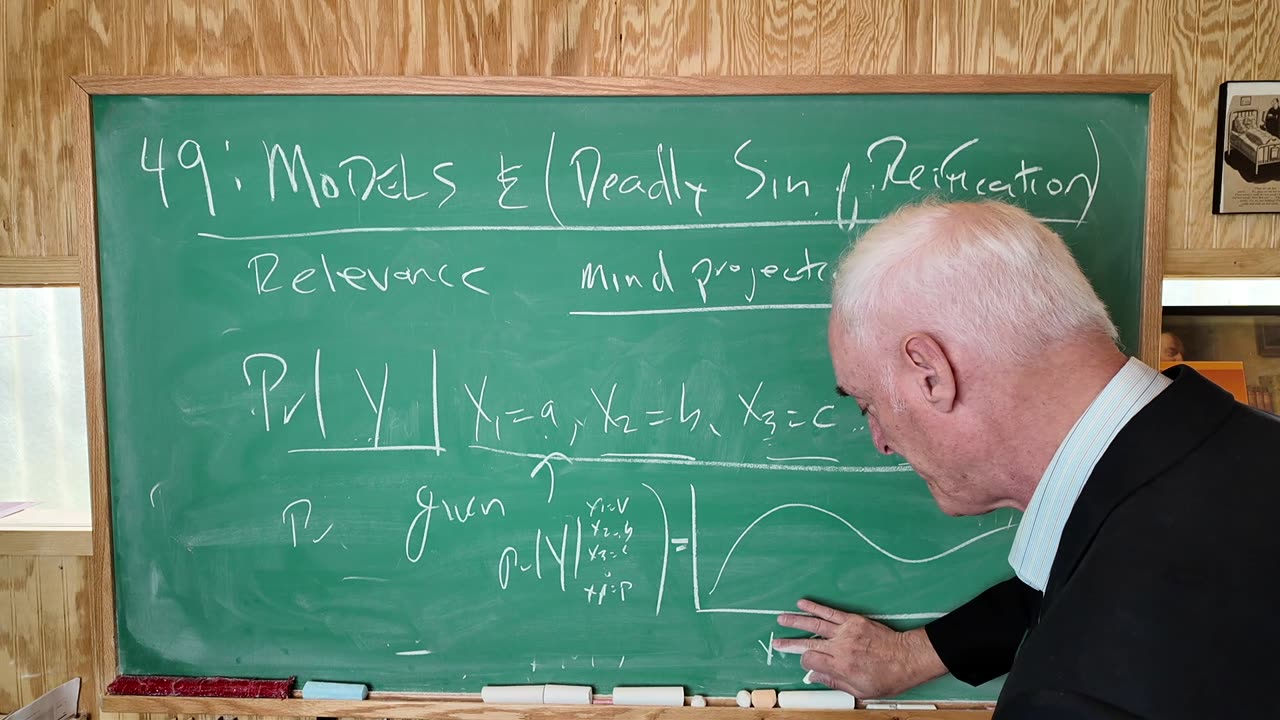 49: MODELS & (Deadly Sin of Reification)
Relevance Mind project
Pr( Y | X1=a, X2=b, X3=c ..
Pr given
Pr(Y| X1=v
X2=b
X3=c
:
Xp=p ) =
Y